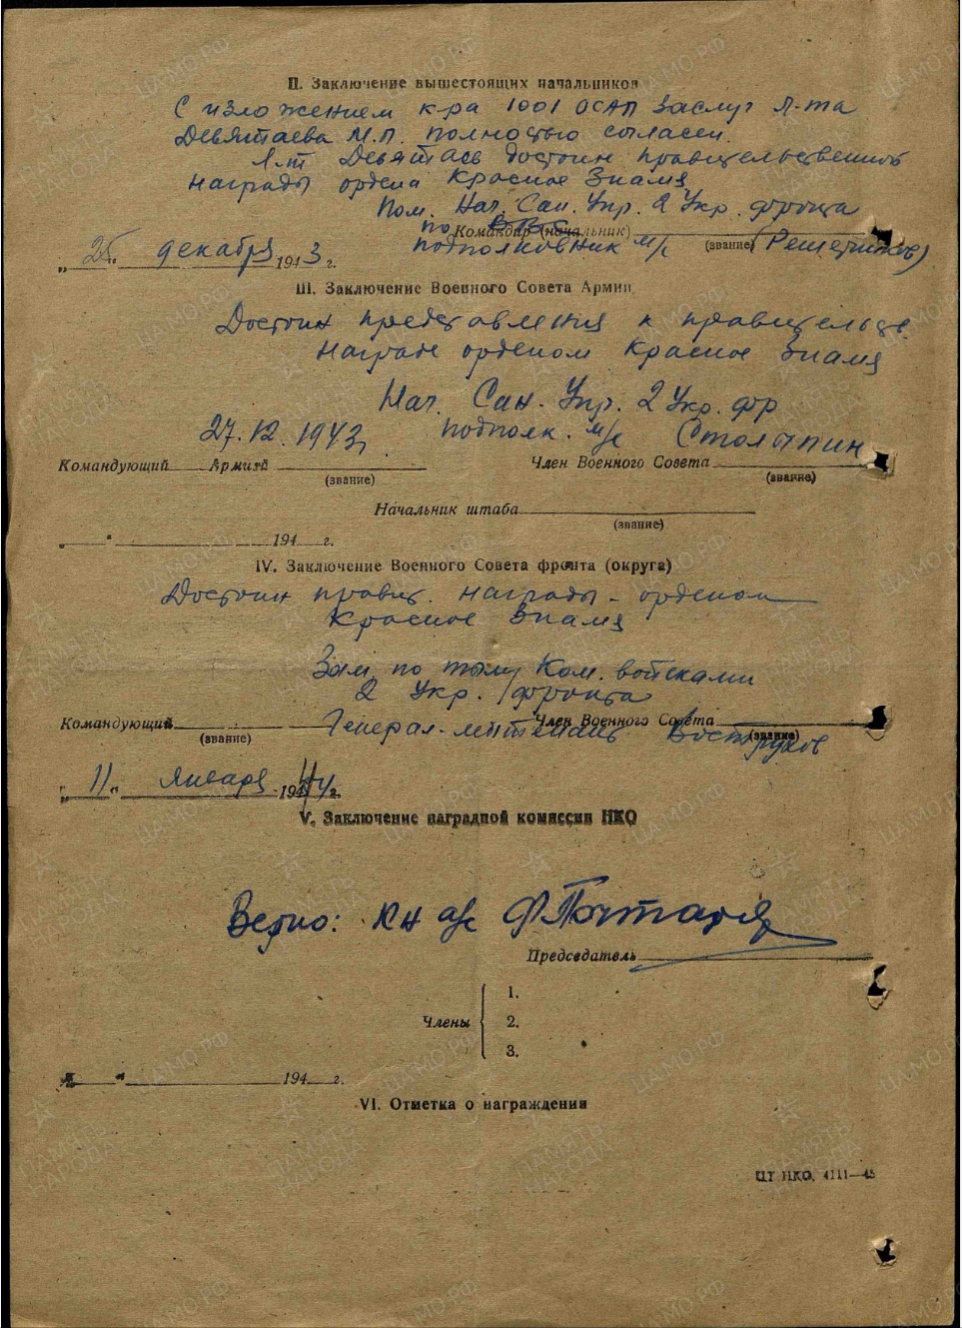 II. Заключение вышестоящих начальников
С изложением к-ра 1001 ОСАП заслуг Л-та
Девятаева М.П. полностью согласен.
Л-т Девятаев достоин правительственной
награды ордена Красное Знамя
Пом. Нач. Сан. Упр. 2 Укр. фронта
по ВВС
Командир (начальник)
подполковник м/с (звание) (Решетников)
„25" декабря 1943 г.
III. Заключение Военного Совета Армии
Достоин представления к правительств.
награде орденом Красное Знамя
Нач. Сан. Упр. 2 Укр. фр
27.12.1943г. подполк. м/с Столыпин
Командующий Армией Член Военного Совета
(звание) (звание)
Начальник штаба
(звание)
„ " 194 г.
IV. Заключение Военного Совета фронта (округа)
Достоин правит. награды - орденом
Красное Знамя
Зам. по тылу Ком. войсками
2 Укр. фронта
Командующий Генерал-лейтенант Член Военного Совета Востру­хов
(звание) (звание)
„11" января 1944г.
V. Заключение наградной комиссии НКО
Верно:
Председатель
1.
Члены 2.
3.
" 194 г.
VI. Отметка о награждении
ЦТ НКО, 4111—43
ПАМЯТЬ НАРОДА
ЦАМО.РФ